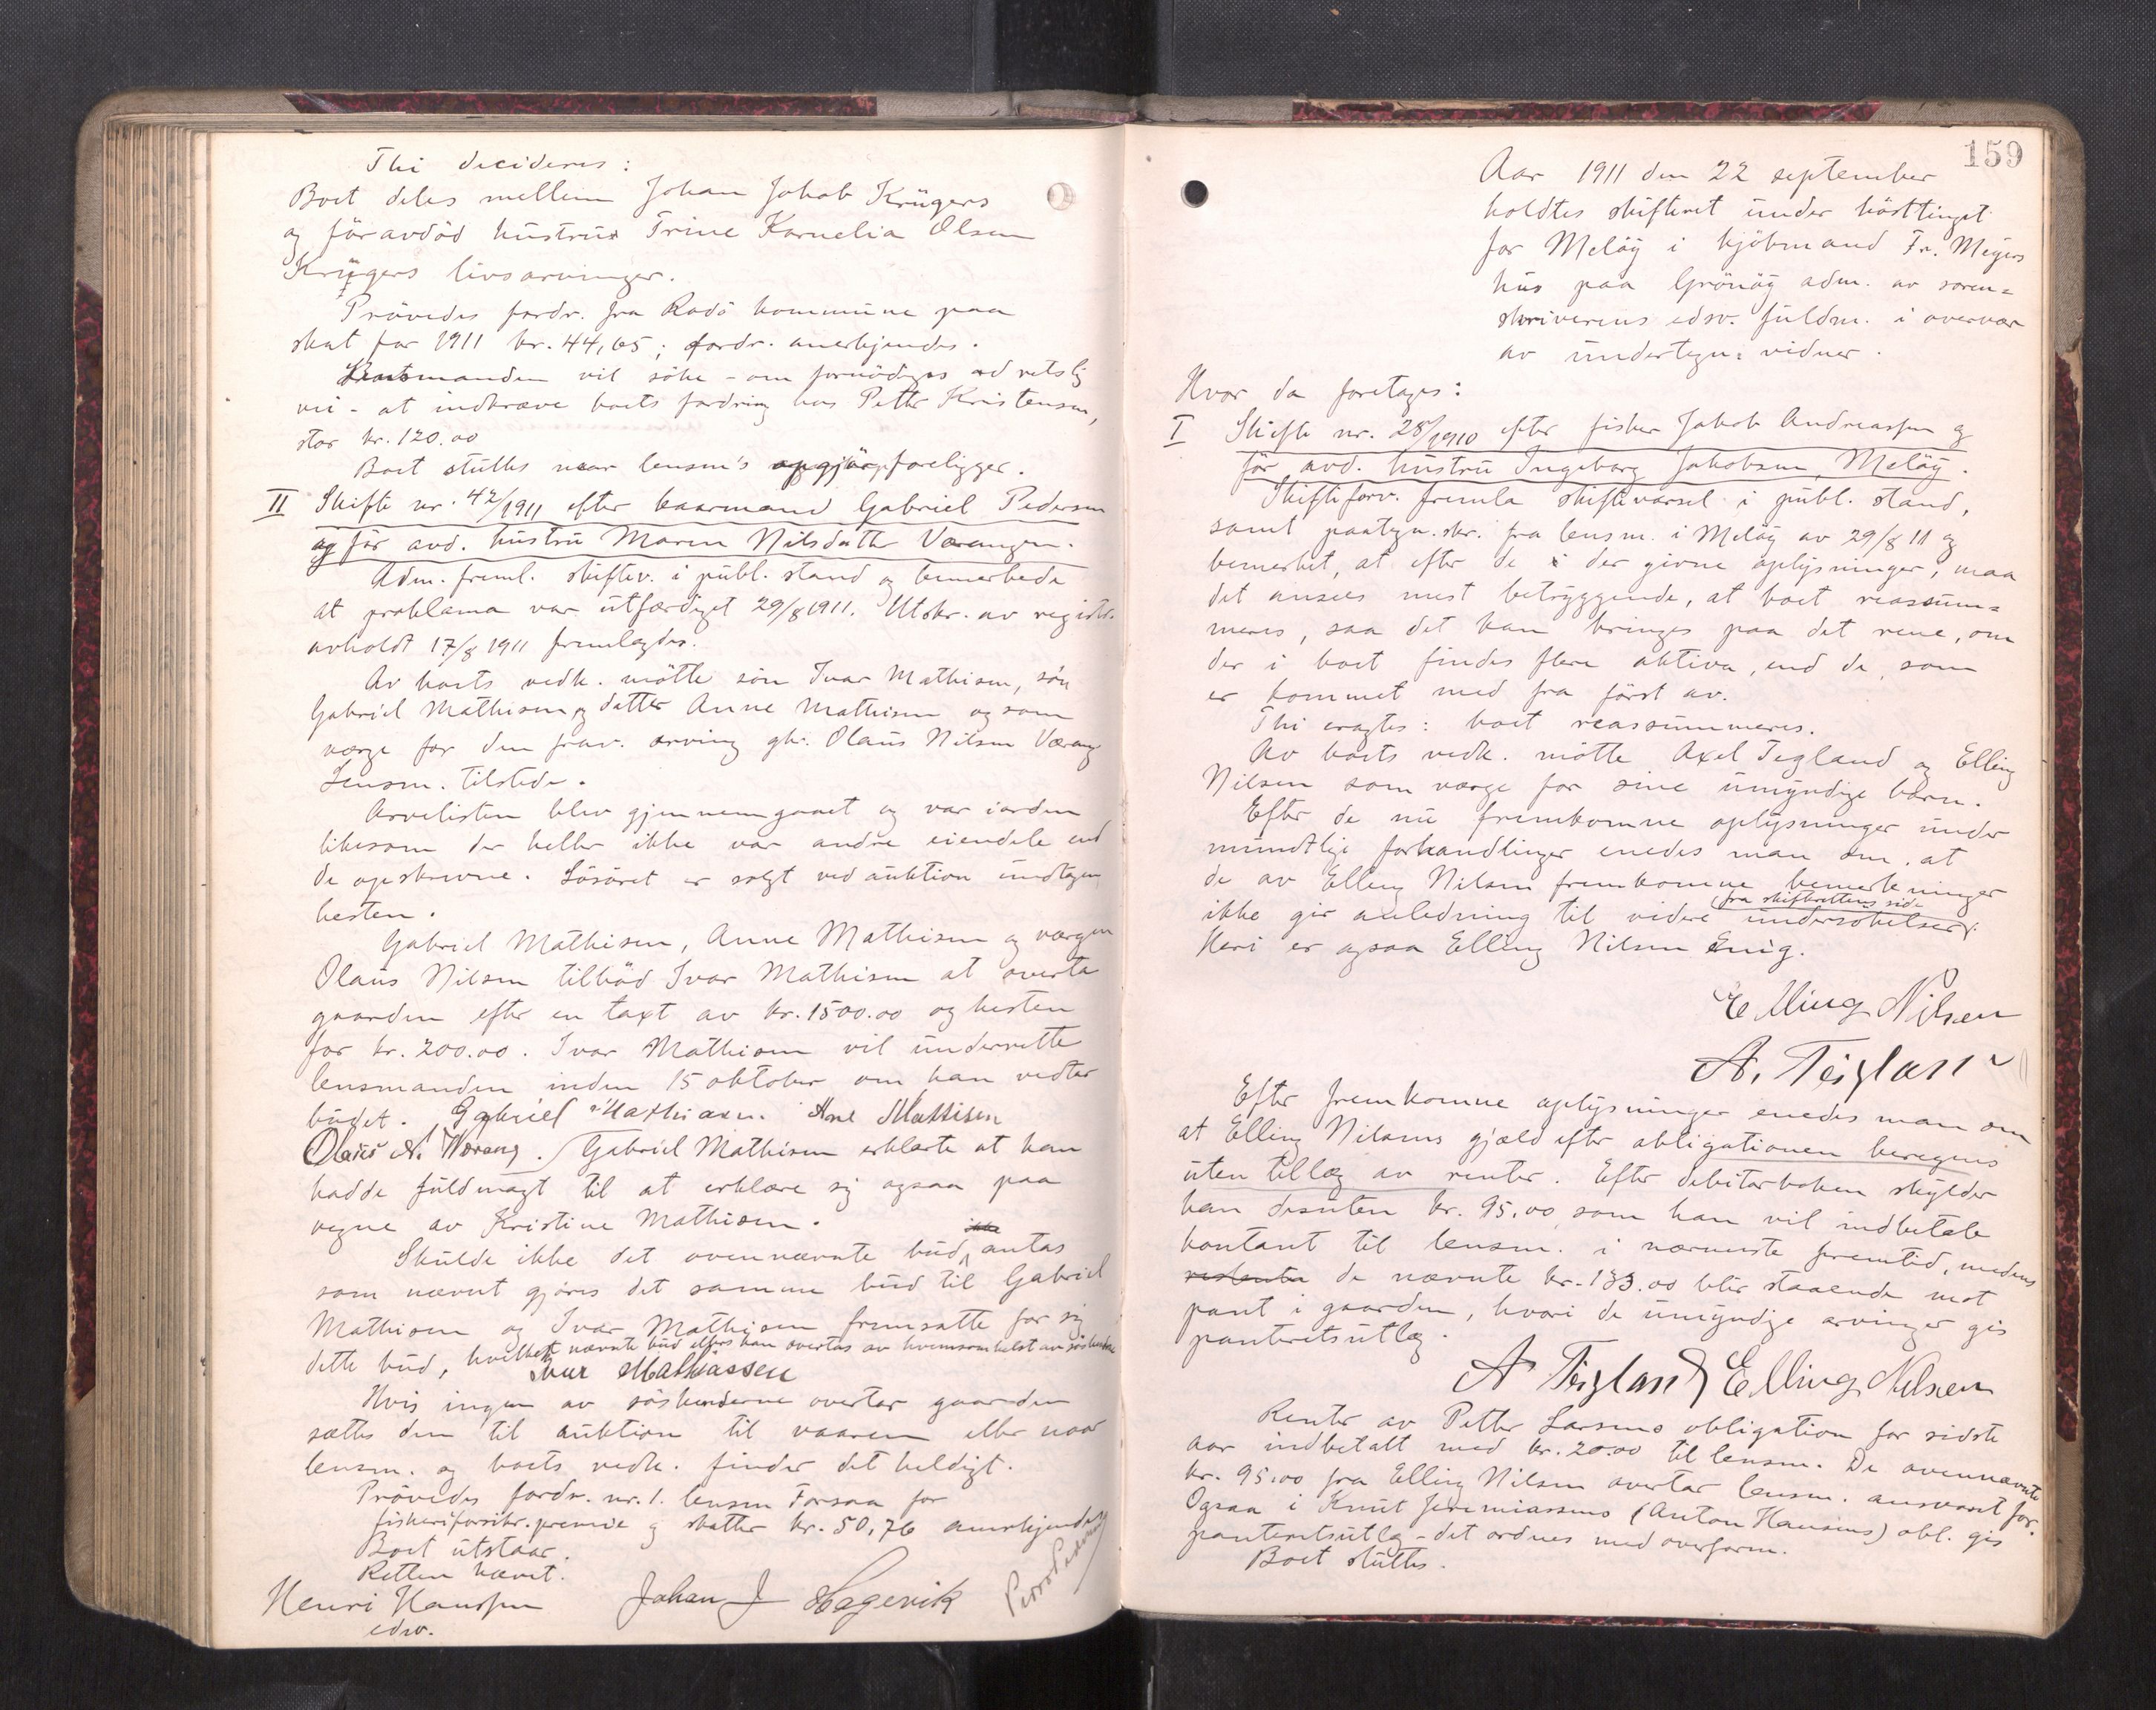 Thi decideres:
Boet deles mellem Johan Jakob Krügers
og før avdød hustrus Trine Kornelia Olsen
Krügers livsarvinger.
Prøvedes fordr. fra Rødø kommune paa
skat for 1911 kr. 44,65; fordr. anerkjendes.
Lensmanden vil søke - om fornødiges ad retslig
vei - at indkræve boets fordring hos Petter Kristensen,
stor kr. 120.00
Boet sluttes naar lensm's opgjør foreligger.
II Skifte nr. 42/1911 efter kaarmand Gabriel Pedersen
og før avd. hustru Maren Nilsdatter Værangen.
Adm. freml. skiftev. i publ. stand og bemerkede
at proklama var utfærdiget 29/8 1911. Utskr. av registr.
avholdt 17/8 1911 fremlagdes.
Av boets vedk. møtte søn Ivar Mathisen, søn
Gabriel Mathisen og datter Anne Mathisen og som
værge for den frav. arving gbr. Olaus Nilsen Værang
Lensm. tilstede.
Arvelisten blev gjennemgaaet og var iorden
likesom der heller ikke var andre eiendele end
de opskrevne. Løsøret er solgt ved auktion undtagen
hesten.
Gabriel Mathisen, Anne Mathisen og værgen
Olaus Nilsen tilbød Ivar Mathisen at overta
gaarden efter en taxt av kr. 1500.00 og hesten
for kr. 200.00. Ivar Mathisen vil underrette
lensmanden inden 15 oktober om han vedtar
budet. Gabriel Mathiasen. Ane Mathisen
Olaus N. Værang. Gabriel Mathisen erklærte at han
hadde fuldmagt til at erklære sig ogsaa paa
vegne av Kristine Mathisen.
ikke
Skulde ikke det ovennævnte bud antas
som nævnt gjøres det samme bud til Gabriel
Mathisen og Ivar Mathisen fremsatte for sig
dette bud, hvilket nævnte bud ellers kan overtas av hvemsomhelst av søskendene
Ivar Mathiassen
Hvis ingen av søskenderne overtar gaarden
sættes den til auktion til vaaren eller naar
lensm. og boets vedk. finder det heldigt.
Prøvedes fordr. nr. 1. lensm Forsaa for
fiskeriforsikr. premie og skatter kr. 50,76 anerkjendes
Boet utstaar.
Retten hævet.
Henri Hanssen Johan J Hagevik
edsv.
159
Aar 1911 den 22 september
holdtes skifteret under høsttinget
for Meløy i kjøbmand Fr. Meyers
hus paa Grønøy adm. av soren=
skriverens edsv. fuldm. i overvær
av undertegn. vidner.
Hvor da foretages:
I Skifte nr. 28/1910 efter fisker Jakob Andreassen og
før avd. hustru Ingeborg Jakobsen, Meløy.
Skifteforv. fremla skiftevarsel i publ. stand,
samt paategn. skr. fra lensm. i Meløy av 29/8 11 og
bemerket, at efter de i der givne oplysninger, maa
det ansees mest betryggende, at boet reassum=
meres, saa det kan bringes paa det rene, om
der i boet findes flere aktiva, end de, som
er kommet med fra først av.
Thi eragtes: boet reassummeres.
Av boets vedk. møtte Axel Tegland og Elling
Nilsen som værge for sine umyndige børn.
Efter de nu fremkomne oplysninger under
mundtlige forhandlinger enedes man om at
de av Elling Nilsen fremkomne bemerkninger
fra skifterettens side
ikke gir anledning til videre undersøkelser.
Heri er ogsaa Elling Nilsen enig.
Elling Nilsen
A. Teigland
Efter fremkomne oplysninger enedes man om
at Elling Nilsens gjæld efter obligationen beregnes
uten tillæg av renter. Efter debitorboken skylder
han desuten kr. 95.00 som han vil indbetale
kontant til lensm. i nærmeste fremtid, medens
resterende de nævnte kr. 133.00 blir staaende mot
pant i gaarden, hvori de umyndige arvinger gis
panteretsutlæg.
A Teigland Elling Nilsen
Renter av Petter Larsens obligation for sidste
aar indbetalt med kr. 20.00 til lensm. De ovennævnte
kr. 95.00 fra Elling Nilsen overtar lensm. ansvaret for.
Ogsaa i Knut Jeremiassens (Anton Hansens) obl. gis
panteretsutlæg - det ordnes med overform.
Boet sluttes.